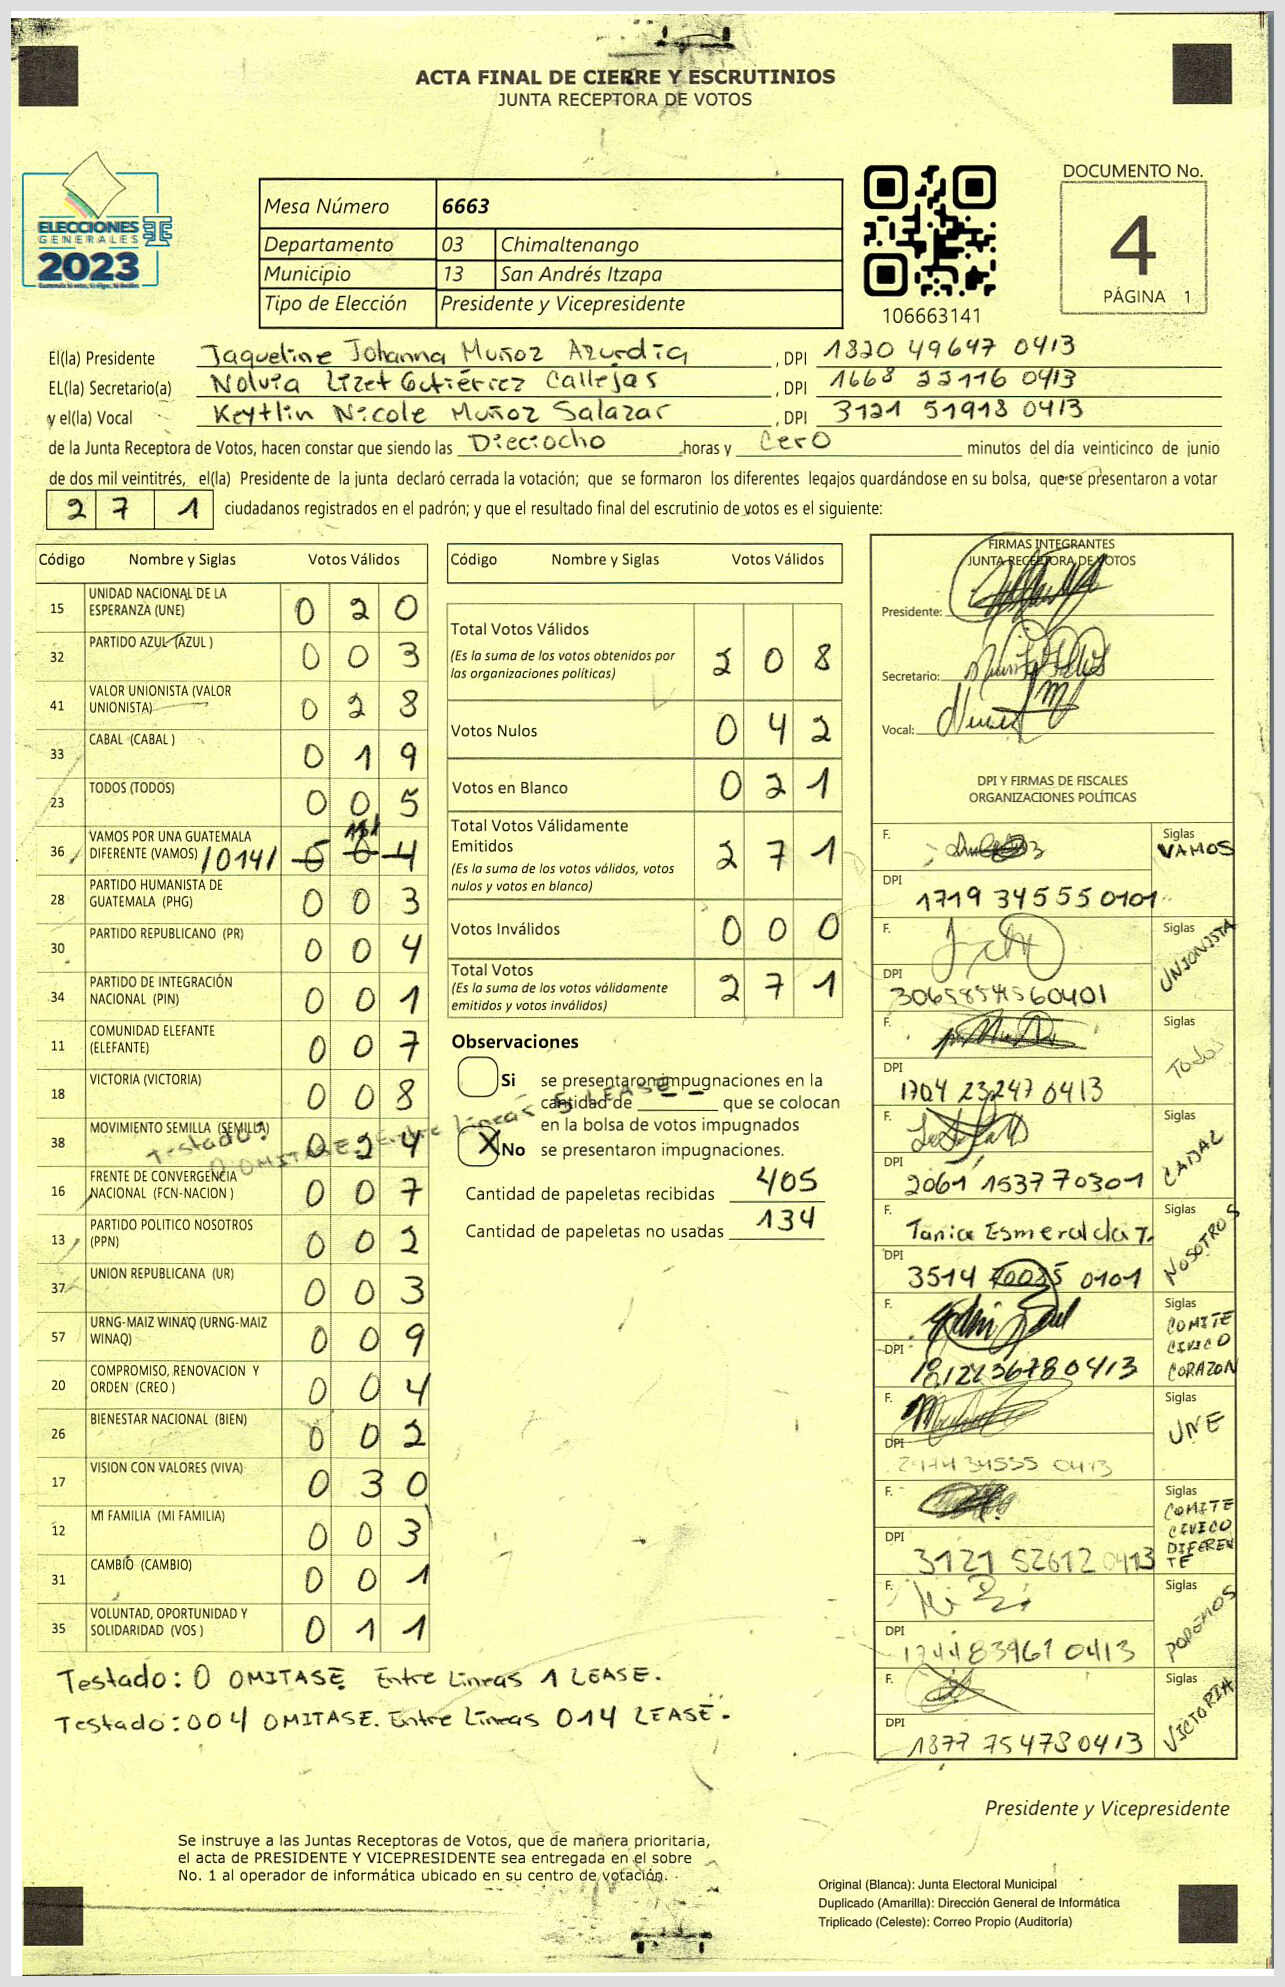 ACTA FINAL DE CIERRE Y ESCRUTINIOS
JUNTA RECEPTORA DE VOTOS
ELECCIONES
GENERALES
2023
Mesa Número 6663
Departamento 03 Chimaltenango
Municipio 13 San Andrés Itzapa
Tipo de Elección Presidente y Vicepresidente
106663141
DOCUMENTO No.
4
PÁGINA 1
El(la) Presidente Jaqueline Johanna Muñoz Azurdia , DPI 1820 49647 0413
EL(la) Secretario(a) Nolvia Lizet Gutiérrez Callejas , DPI 1668 22116 0413
y el(la) Vocal Keytlin Nicole Muñoz Salazar , DPI 3121 51918 0413
de la Junta Receptora de Votos, hacen constar que siendo las Dieciocho horas y Cero minutos del día veinticinco de junio
de dos mil veintitrés, el(la) Presidente de la junta declaró cerrada la votación; que se formaron los diferentes legajos guardándose en su bolsa, que se presentaron a votar
271 ciudadanos registrados en el padrón; y que el resultado final del escrutinio de votos es el siguiente:
Código Nombre y Siglas Votos Válidos
15 UNIDAD NACIONAL DE LA ESPERANZA (UNE) 020
32 PARTIDO AZUL (AZUL ) 003
41 VALOR UNIONISTA (VALOR UNIONISTA) 028
33 CABAL (CABAL ) 019
23 TODOS (TODOS) 005
36 VAMOS POR UNA GUATEMALA DIFERENTE (VAMOS) /014/ 004
28 PARTIDO HUMANISTA DE GUATEMALA (PHG) 003
30 PARTIDO REPUBLICANO (PR) 004
34 PARTIDO DE INTEGRACIÓN NACIONAL (PIN) 001
11 COMUNIDAD ELEFANTE (ELEFANTE) 007
18 VICTORIA (VICTORIA) 008
38 MOVIMIENTO SEMILLA (SEMILLA) 024
16 FRENTE DE CONVERGENCIA NACIONAL (FCN-NACION ) 007
13 PARTIDO POLITICO NOSOTROS (PPN) 002
37 UNION REPUBLICANA (UR) 003
57 URNG-MAIZ WINAQ (URNG-MAIZ WINAQ) 009
20 COMPROMISO, RENOVACION Y ORDEN (CREO ) 004
26 BIENESTAR NACIONAL (BIEN) 002
17 VISION CON VALORES (VIVA) 030
12 MI FAMILIA (MI FAMILIA) 003
31 CAMBIO (CAMBIO) 001
35 VOLUNTAD, OPORTUNIDAD Y SOLIDARIDAD (VOS ) 011
Testado: 0 OMITASE. Entre Lineas 5 LEASE
Testado: 0 OMITASE. Entre Lineas 1 LEASE.
Testado: 004 OMITASE. Entre Líneas 014 LEASE.
Código Nombre y Siglas Votos Válidos
Total Votos Válidos 208
(Es la suma de los votos obtenidos por
las organizaciones políticas)
Votos Nulos 042
Votos en Blanco 021
Total Votos Válidamente
Emitidos 271
(Es la suma de los votos válidos, votos
nulos y votos en blanco)
Votos Inválidos 000
Total Votos 271
(Es la suma de los votos válidamente
emitidos y votos inválidos)
Observaciones
Si se presentaron impugnaciones en la
cantidad de -- que se colocan
en la bolsa de votos impugnados
X No se presentaron impugnaciones.
Cantidad de papeletas recibidas 405
Cantidad de papeletas no usadas 134
FIRMAS INTEGRANTES
JUNTA RECEPTORA DE VOTOS
Presidente:
Secretario:
Vocal:
DPI Y FIRMAS DE FISCALES
ORGANIZACIONES POLÍTICAS
F. Siglas VAMOS
DPI 1719 34555 0101
F. Siglas UNIONISTA
DPI
F. Siglas TODOS
DPI 1704 23247 0413
F. Siglas CABAL
DPI 2061 15377 0301
F. Tania Esmeralda T. Siglas NOSOTROS
DPI 3514 0101
F. Siglas COMITE CIVICO CORAZON
DPI
F. Siglas UNE
DPI
F. Siglas COMITE CIVICO DIFERENTE
DPI 3121 52612 0413
F. Siglas PODEMOS
DPI 1244 83961 0413
F. Siglas VICTORIA
DPI 1877 75478 0413
Presidente y Vicepresidente
Se instruye a las Juntas Receptoras de Votos, que de manera prioritaria,
el acta de PRESIDENTE Y VICEPRESIDENTE sea entregada en el sobre
No. 1 al operador de informática ubicado en su centro de votación.
Original (Blanca): Junta Electoral Municipal
Duplicado (Amarilla): Dirección General de Informática
Triplicado (Celeste): Correo Propio (Auditoría)